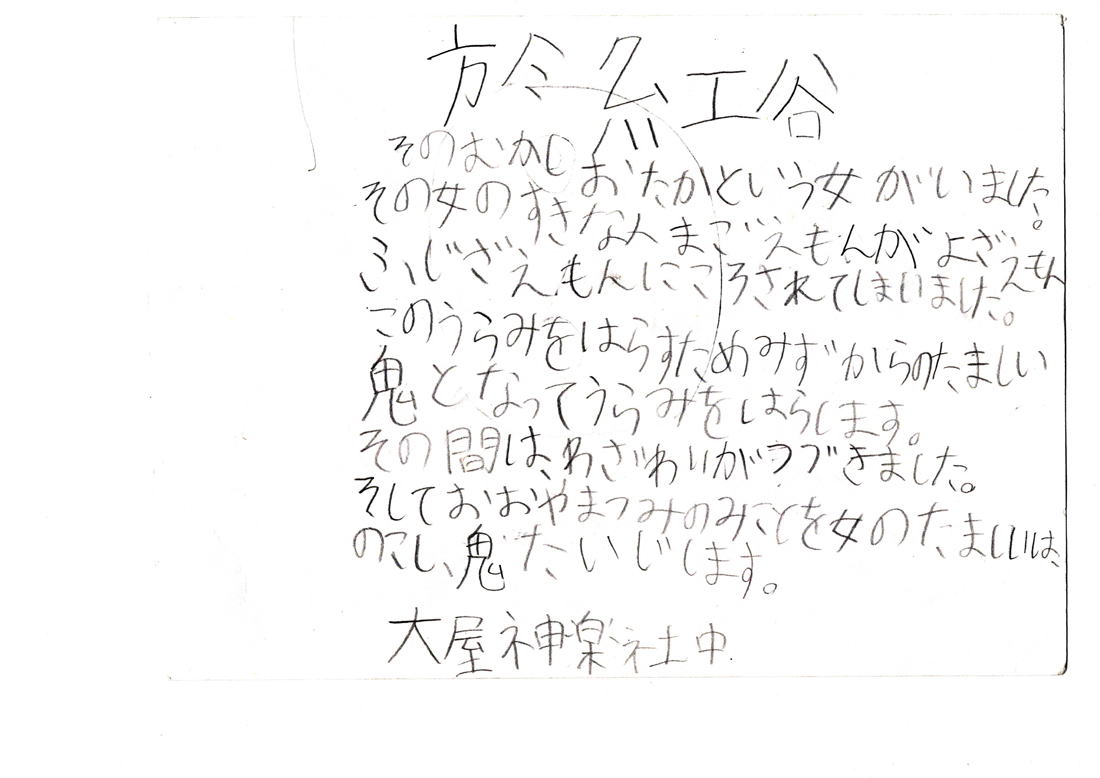 於紅谷
そのむかし おたかという女がいました。
その女のすきな人まごえもんがよざえもん
ふじざえもんにころされてしまいました。
このうらみをはらすためみずからのたましい
鬼となってうらみをはらします。
その間は、わざわいがつづきました。
そしておおやまつみのみことを女のたましいは、
のこし、鬼たいじします。
大屋神楽社中